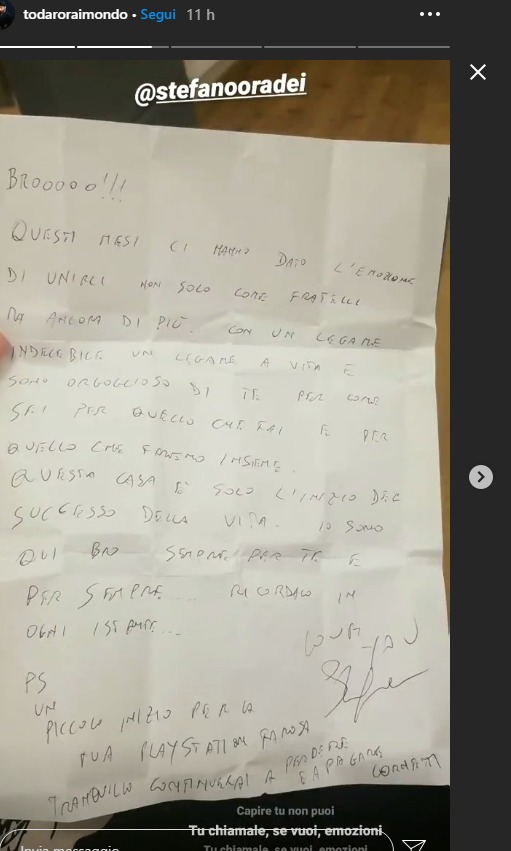 todaroraimondo • Segui 11 h
@stefanooradei
BROOOOO!!!
QUESTI MESI CI HANNO DATO L'EMOZIONE
DI UNIRCI NON SOLO COME FRATELLI
MA ANCORA DI PIÙ. CON UN LEGAME
INDELEBILE UN LEGAME A VITA E
SONO ORGOGLIOSO DI TE PER COME
SEI PER QUELLO CHE FAI E PER
QUELLO CHE FAREMO INSIEME.
QUESTA CASA È SOLO L'INIZIO DEL
SUCCESSO DELLA VITA. IO SONO
QUI BRO SEMPRE PER TE E
PER SEMPRE... RICORDALO IN
OGNI ISTANTE...
PS
UN
PICCOLO INIZIO PER LA
TUA PLAYSTATION FAMOSA
TRANQUILLO CONTINUERAI A PERDERE
E A PAGARE
Capire tu non puoi
Tu chiamale, se vuoi, emozioni
Tu chiamale, se vuoi, emozioni
Invia messaggio